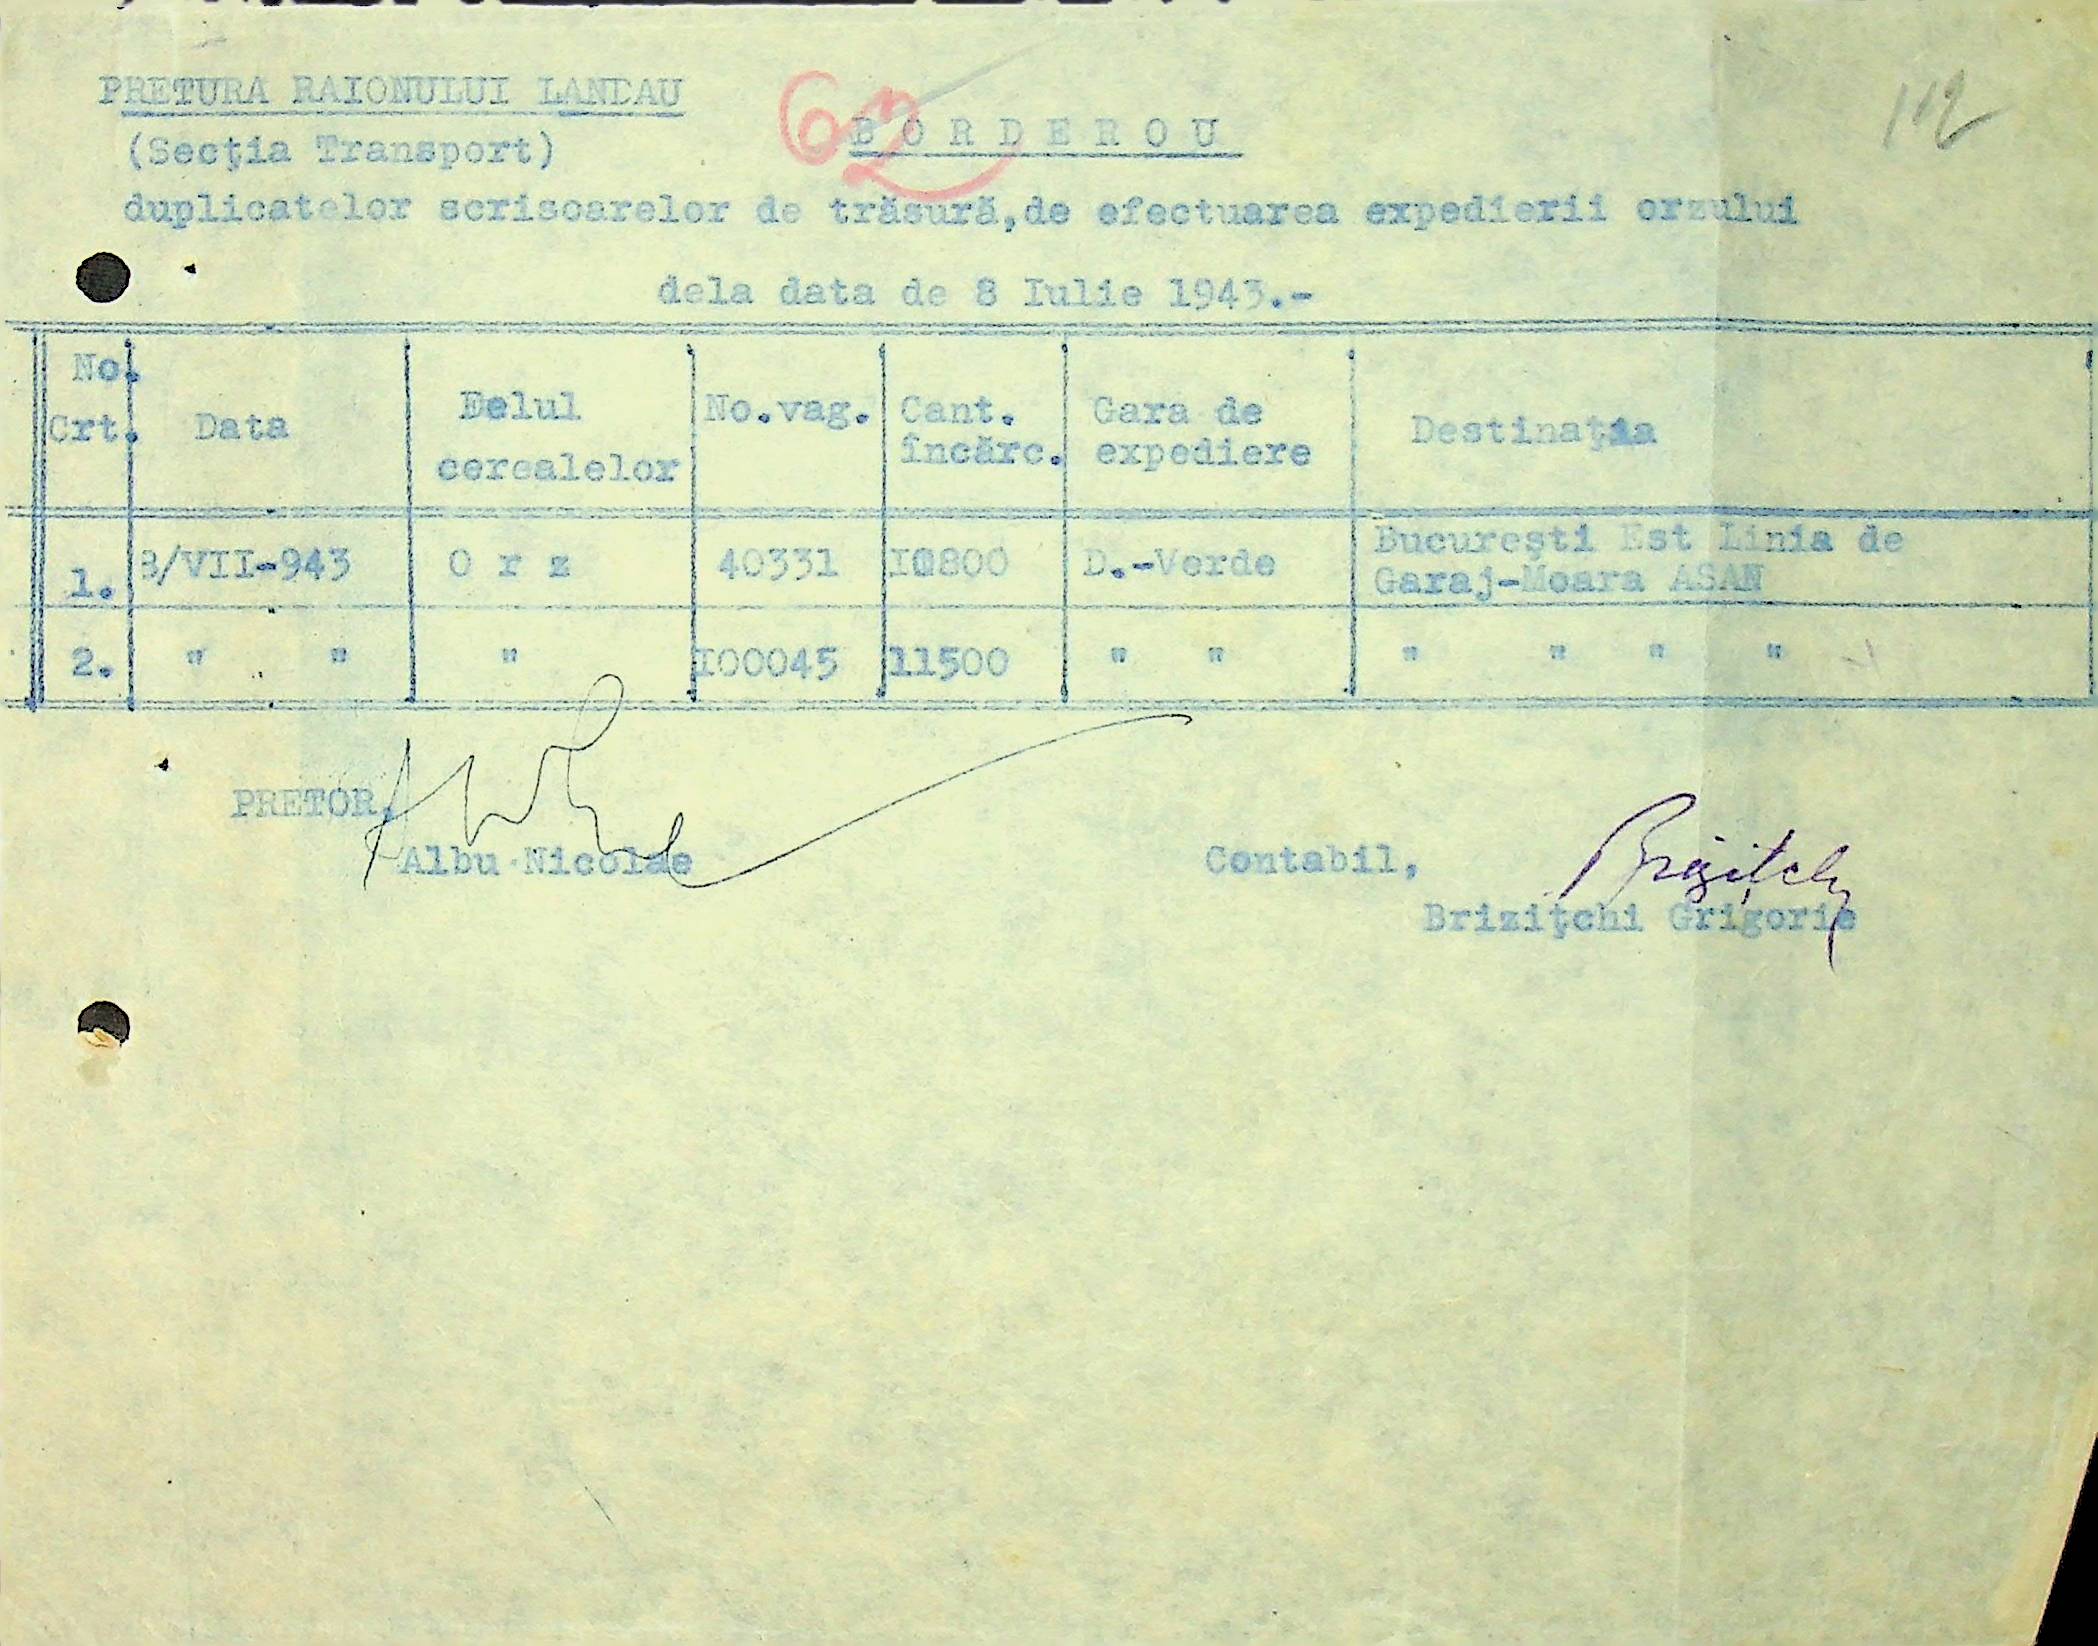 PRETURA RAIONULUI LANDAU
62
112
(Secţia Transport)
B O R D E R O U
duplicatelor scrisoarelor de trăsură,de efectuarea expedierii orzului
dela data de 8 Iulie 1943.-
No. Crt. Data Felul cerealelor No.vag. Cant. încărc. Gara de expediere Destinaţia
1. 8/VII-943 O r z 40331 10800 D.-Verde Bucureşti Est Linia de
Garaj-Moara ASAN
2. " " " I00045 11500 " " " " " "
PRETOR,
Albu Nicolae
Contabil,
Briziţchi
Briziţchi Grigorie